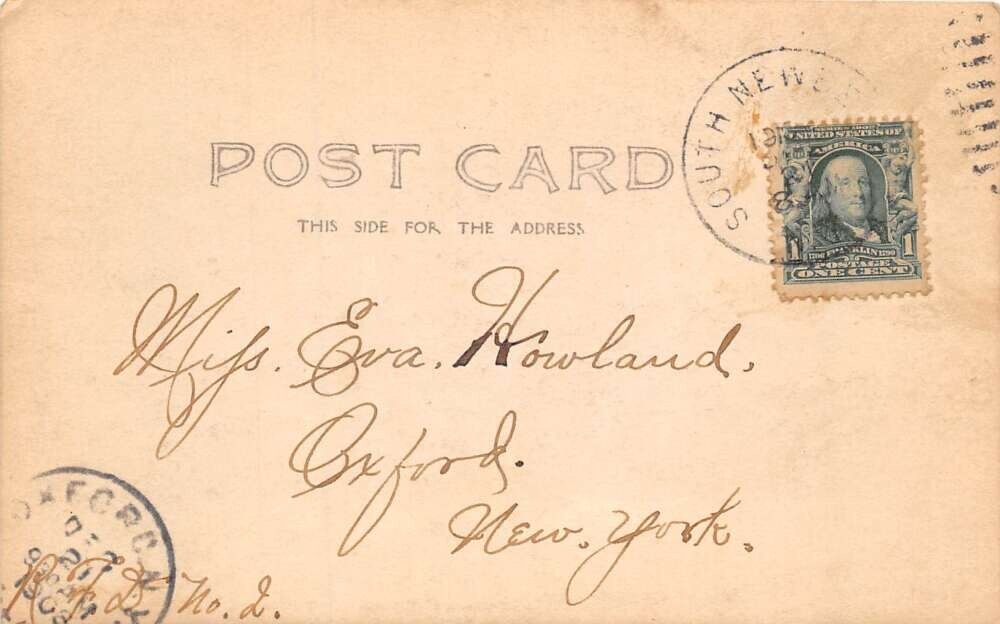 POST CARD
THIS SIDE FOR THE ADDRESS
SOUTH NEW
SERIES 1902
UNITED STATES OF
AMERICA
1 1
1706 FRANKLIN 1790
POSTAGE
ONE CENT
Miss. Eva. Howland.
Oxford.
New. York.
OXFORD, N.Y.
R F D No. 2.